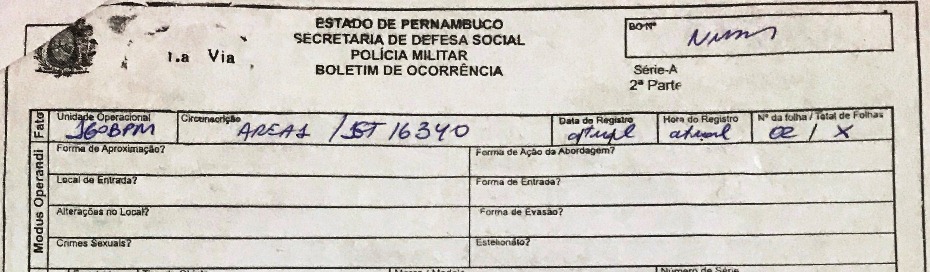 ESTADO DE PERNAMBUCO
SECRETARIA DE DEFESA SOCIAL
POLÍCIA MILITAR
BOLETIM DE OCORRÊNCIA
1.a Via
BO Nº
Série-A
2ª Parte
Fato
Unidade Operacional Circunscrição Data do Registro Hora do Registro Nº da folha / Total de Folhas
16ºBPM AREA1 / 16340 atual atual 02 / X
Modus Operandi
Forma de Aproximação? Forma de Ação da Abordagem?
Local de Entrada? Forma de Entrada?
Alterações no Local? Forma de Evasão?
Crimes Sexuais? Estelionato?
Marca / Modelo Número de Série